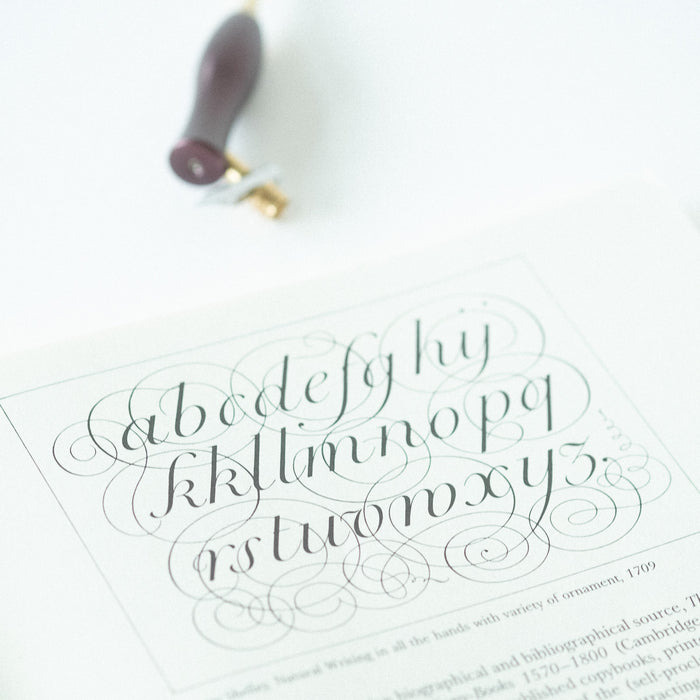 abcdefghij
kkllmnopq
rstuvwxyz.
Shelley, Natural Writing in all the hands with variety of ornament, 1709
biographical and bibliographical source, Th
Books 1570–1800 (Cambridge
copybooks, printe
(self-proc